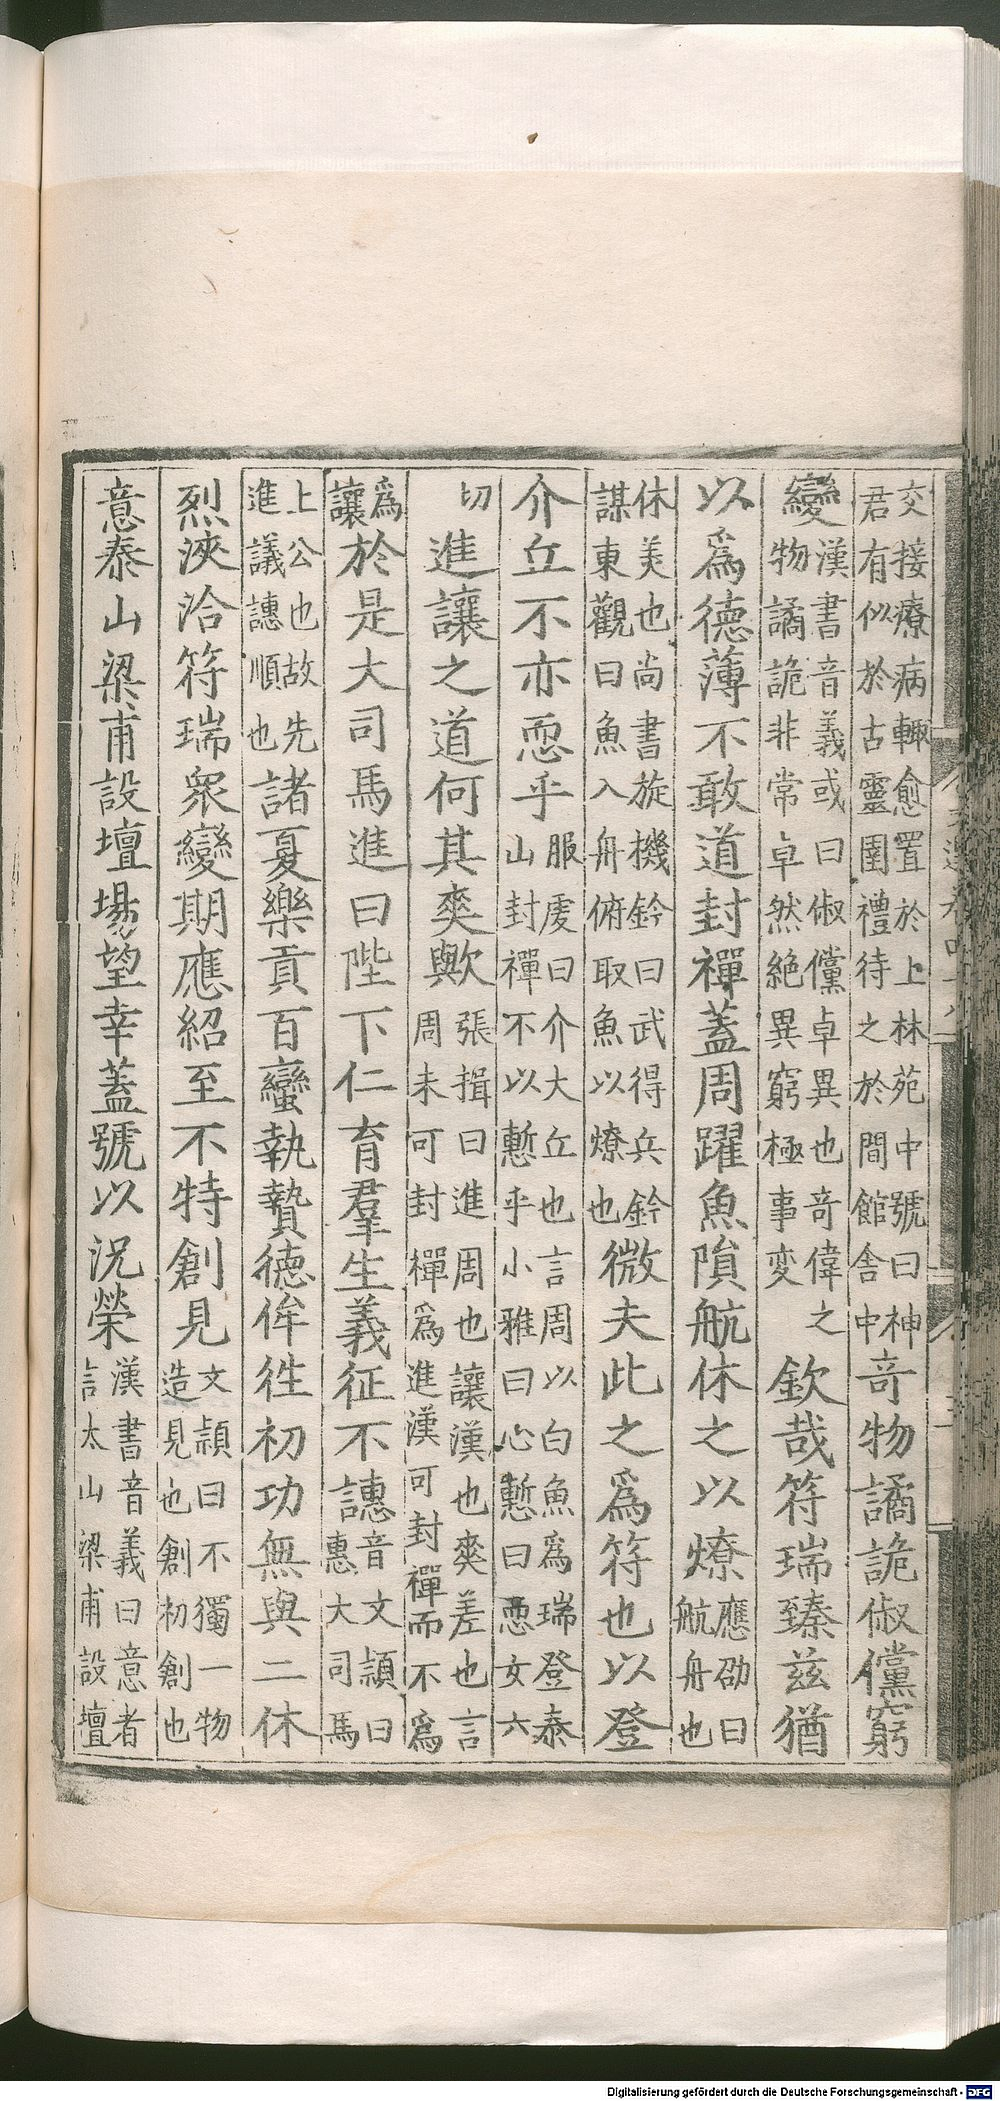 交接療病輙愈置於上林苑中號曰神君有似於古靈圉禮待之於閒館舍中奇物譎詭俶儻窮
變漢書音義或曰俶儻卓異也奇偉之物譎詭非常卓然絶異窮極事変欽哉符瑞臻兹猶
以爲德薄不敢道封禪蓋周躍魚隕航休之以燎應劭曰航舟也
休美也尚書旋機鈐曰武得兵鈐謀東觀曰魚入舟俯取魚以燎也微夫此之爲符也以登
介丘不亦恧乎服虔曰介大丘也言周以白魚爲瑞登泰山封禪不以慙乎小雅曰心慙曰恧女六
切進讓之道何其爽歟張揖曰進周也讓漢也爽差也言周未可封禪爲進漢可封禪而不爲
爲讓於是大司馬進曰陛下仁育羣生義征不譓音惠文頴曰大司馬
上公也故先進議譓順也諸夏樂貢百蠻執贄德侔徃初功無與二休
烈浹洽符瑞衆變期應紹至不特創見文頴曰不獨一物造見也創初創也
意泰山梁甫設壇場望幸蓋號以况榮漢書音義曰意者言太山梁甫設壇
Digitalisierung gefördert durch die Deutsche Forschungsgemeinschaft - DFG